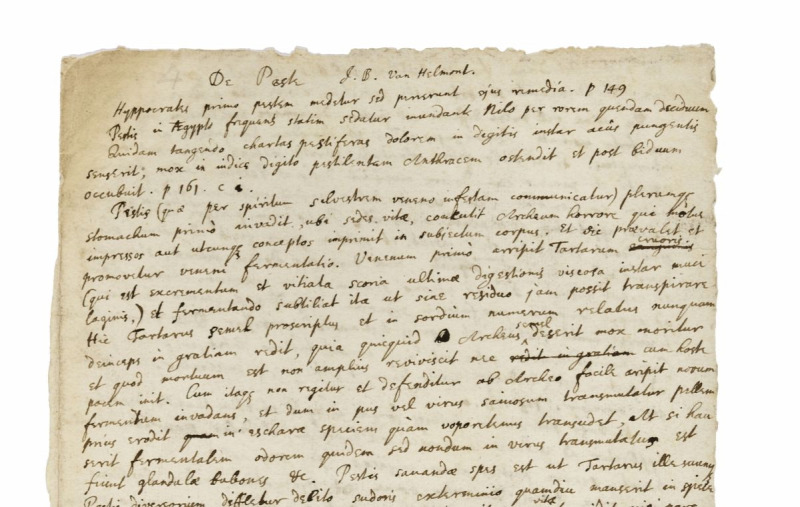 De Peste J. B. Van Helmont.
Hyppocrates primo pestem medetur sed perierunt ejus remedia. p 149
Pestis in Ægypto frequens statim sedatur inundante Nilo per rorem quendam deciduum
Quidam tangendo chartas pestiferas dolorem in digitis instar acûs pungentis
senserit; mox in indice digito pestilentem Anthracem ostendit et post biduum
occubuit. p 161. c
Pestis (quæ per spiritum silvestrem veneno infestam communicatur) plerumq
stomachum primò invadit, ubi sedes vitæ, concutit Archeum horrore qui
impressos aut utcunq conceptos imprimit in subjectum corpus. Et sic prævalet et
promovetur veneni fermentatio. Venenum primò arripit Tartarum sanguinis cruoris
(qui est excrementum et vitiata scoria ultimæ digestionis viscosa instar muci
laginis,) et fermentando subtiliat ita ut sine residuo jam possit transpirare
Hic Tartarus semel proscriptus et in sordium numerum relatus nunquam
deinceps in gratiam redit, quia quicquid Archeus semel deserit mox moritur
et quod mortuum est non amplius reviviscit nec redit in gratiam cum hoste
pacem init. Cum itaq non regitur et defenditur ab Archeo facile aripit novum
fermentum invadens, et dum in pus vel virus saniosum transmutatur pellem
prius erodit quam in escharæ speciem quàm vaporibus transudet, At si hau
serit fermentalem odorem quidem sed nondum in virus transmutatus est
fiunt glandulæ bubones &c. Pestis sanandæ spes est ut Tartarus ille
Pestis diversorium diffletur debito sudoris exterminio quamdiu manserit in specie
vitæ